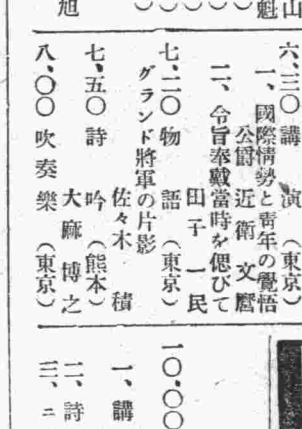 山
魁
旭
六、三〇 講演(東京)
一、國際情勢と靑年の覺悟
公爵 近衛文麿
二、令旨奉戴當時を偲びて
田子一民
七、二〇 物語(東京)
グランド將軍の片影
佐々木積
七、五〇 詩吟(熊本)
大麻博之
八、〇〇 吹奏樂(東京)
一〇、〇〇
一、講
二、詩
三、ニ